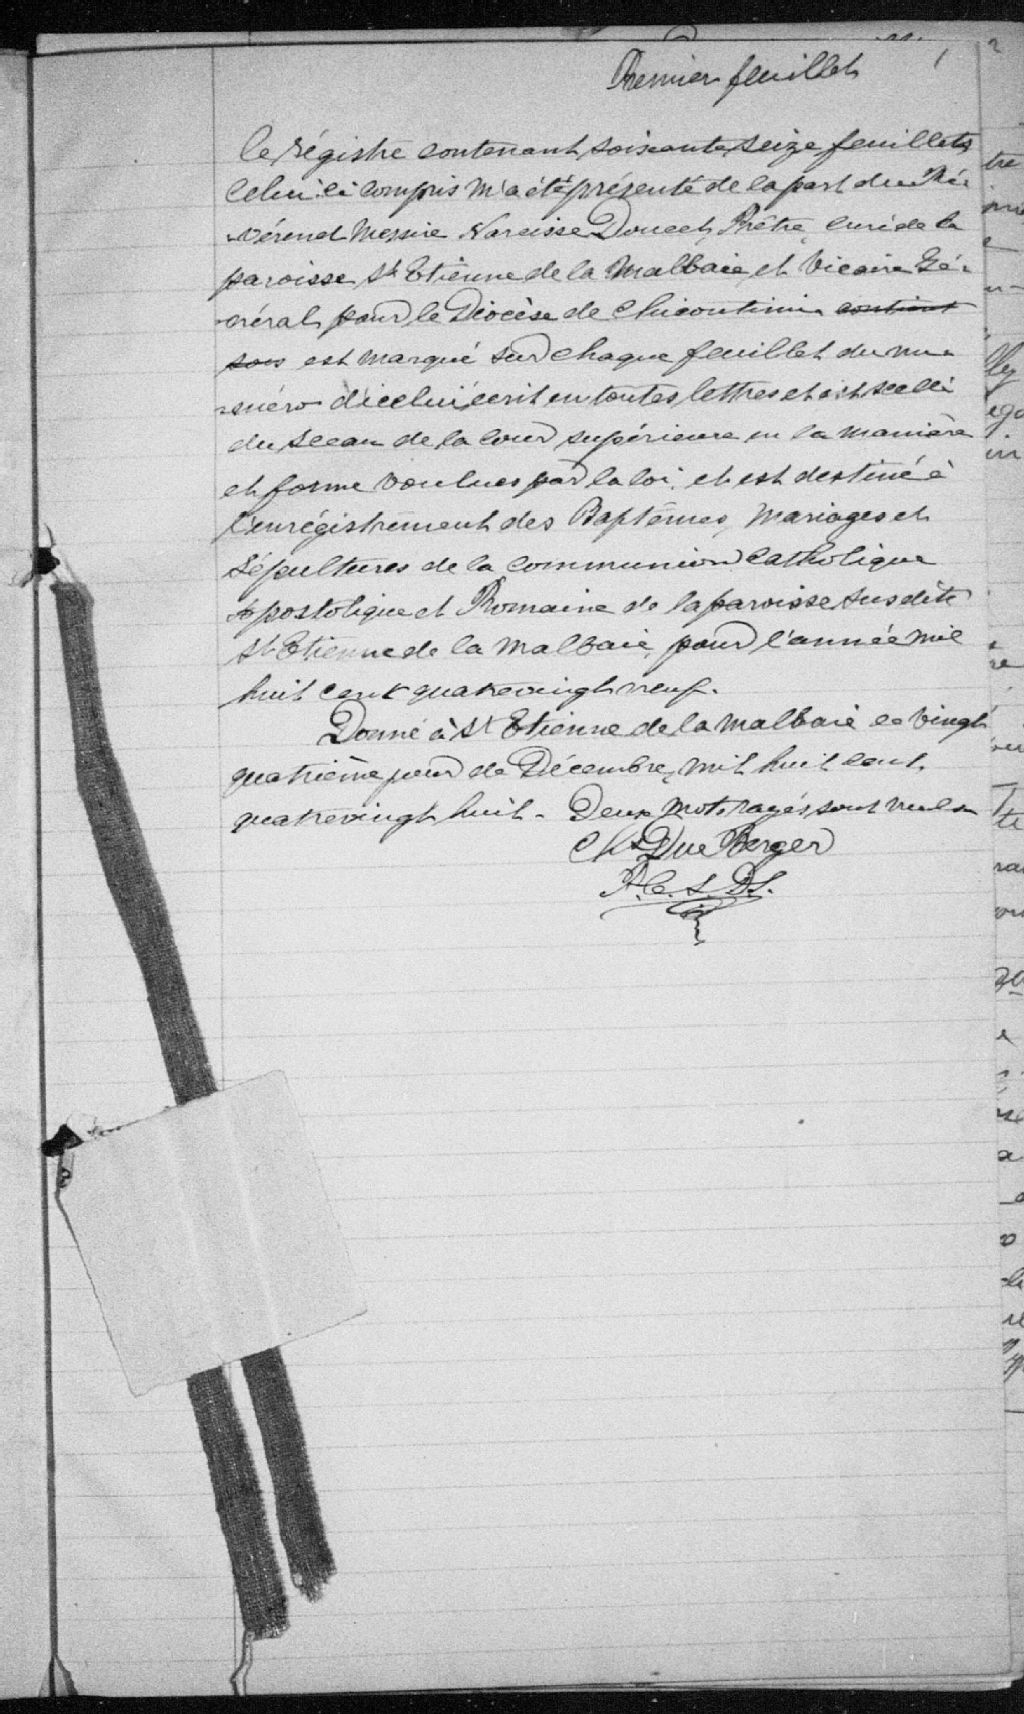 Premier feuillet 1
Ce régistre contenant soixante seize feuillets
Celui ci compris m'a été présenté de la part du Ré-
vérend Messire Narcisse Doucet, Prêtre, curé de la
paroisse St Etienne de la Malbaie et Vicaire Gé-
néral pour le Diocèse de Chicoutimi contient
sois est marqué sur chaque feuillet du nu-
méro d'icelui écrit en toutes lettres et est scellé
du Sceau de la Cour supérieure en la manière
et forme voulues par la loi, et est destiné à
l'enrégistrement des Baptêmes, Mariages et
Sépultures de la communion Catholique
Apostolique et Romaine de la paroisse susdite
St Etienne de la Malbaie, pour l'année mil
huit cent quatrevingt neuf.
Donné à St Etienne de la Malbaie ce vingt
quatrième jour de Décembre, mil huit cent
quatrevingt huit - Deux mots rayés sont nuls
Chs Du Berger
P.C.S.DS.